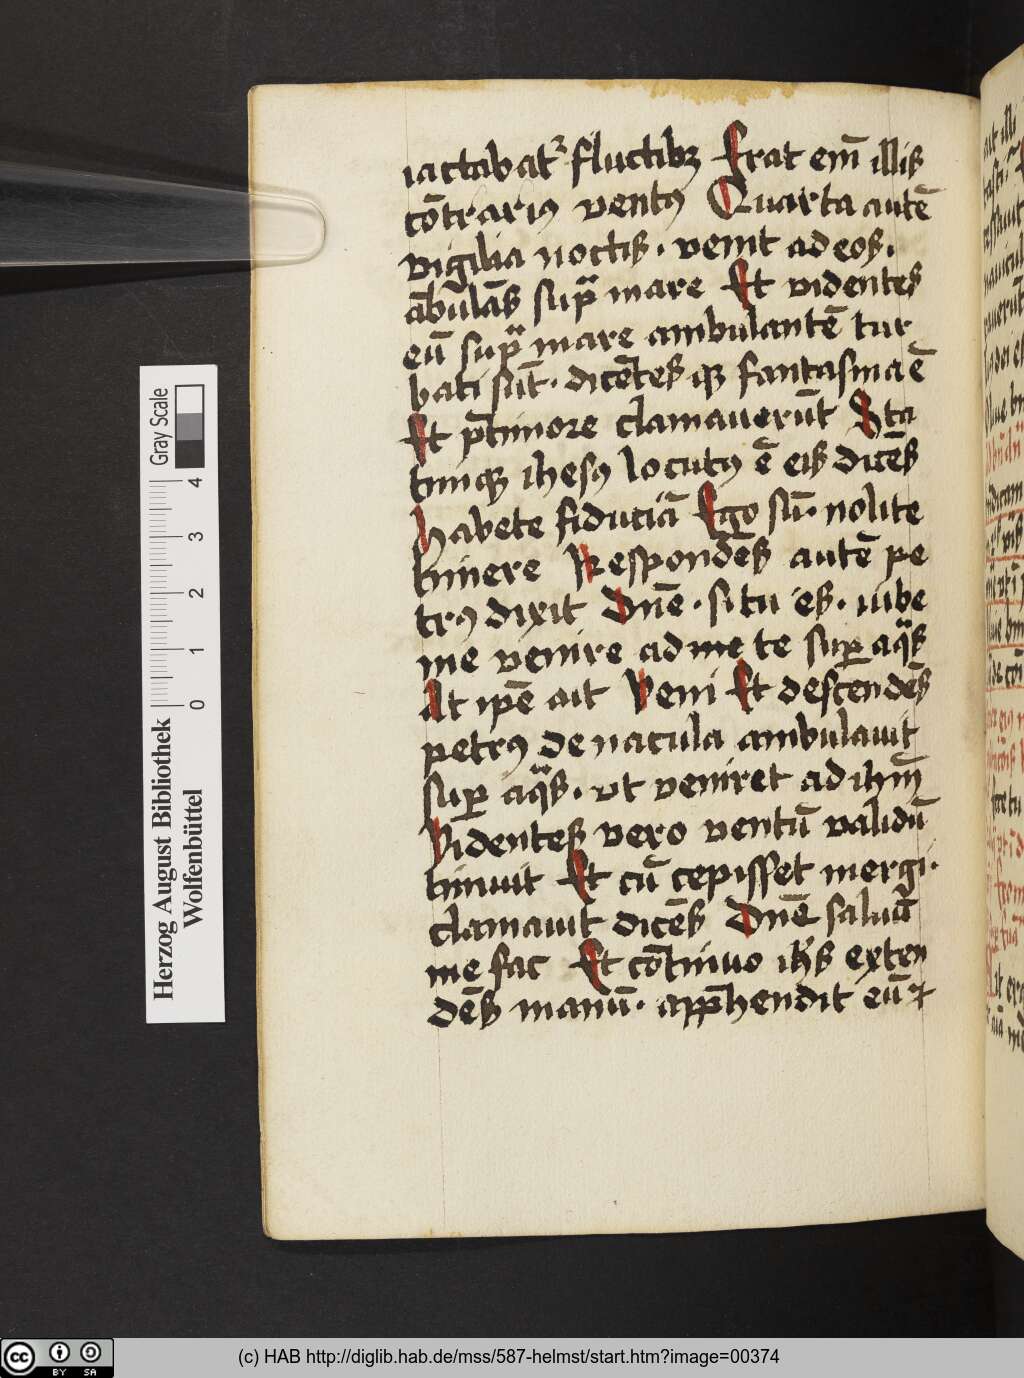 iactabat᷑ fluctibꝫ Erat em̄ illis
cōtrariꝰ ventꝰ Quarta autē
vigilia noctis · venit ad eos ·
ābulās sup̄ mare Et videntes
eū sup̄ mare ambulantē tur
bati sūt · dicētes qꝫ fantasma ē
Et p̄timore clamauerūt Sta
timqꝫ ihesꝰ locutꝰ ē eis dicēs
Habete fiduciā Ego sū · nolite
timere Respondēs autē pe
trꝰ dixit Dn̄e · si tu es · iube
me venire ad me te suꝑ aq̄s
At ip̄e ait Veni Et descendēs
petrꝰ de nacula ambulauit
suꝑ aq̄s · vt veniret ad ihm̄
Videntes vero ventū validū
timuit Et cū cepisset mergi ·
clamauit dicēs Dn̄e saluū
me fac Et cōtinuo ih̄s exten
dēs manū · app̄hendit eū ⁊
Herzog August Bibliothek
Wolfenbüttel
Gray Scale
0 1 2 3 4
cc BY SA
(c) HAB http://diglib.hab.de/mss/587-helmst/start.htm?image=00374